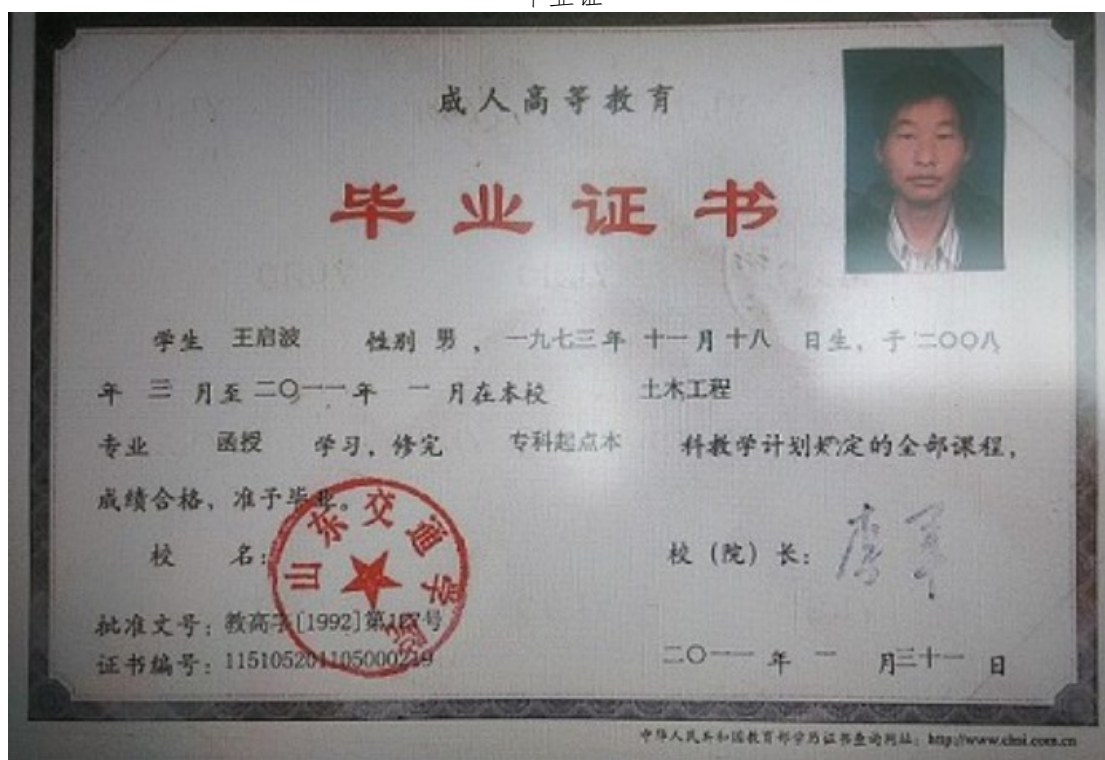 毕业证
成人高等教育
毕业证书
学生 王启波 性别 男，一九七三年 十一月十八 日生，于 二〇〇八
年 三 月至 二〇一一年 一 月在本校 土木工程
专业 函授 学习，修完 专科起点本 科教学计划规定的全部课程，
成绩合格，准予毕业。
校 名：
山东交通学院
校（院）长：
批准文号：教高字[1992]第 号
证书编号：115105201105000219
二〇一一 年 一 月三十一 日
中华人民共和国教育部学历证书查询网址：http://www.chsi.com.cn